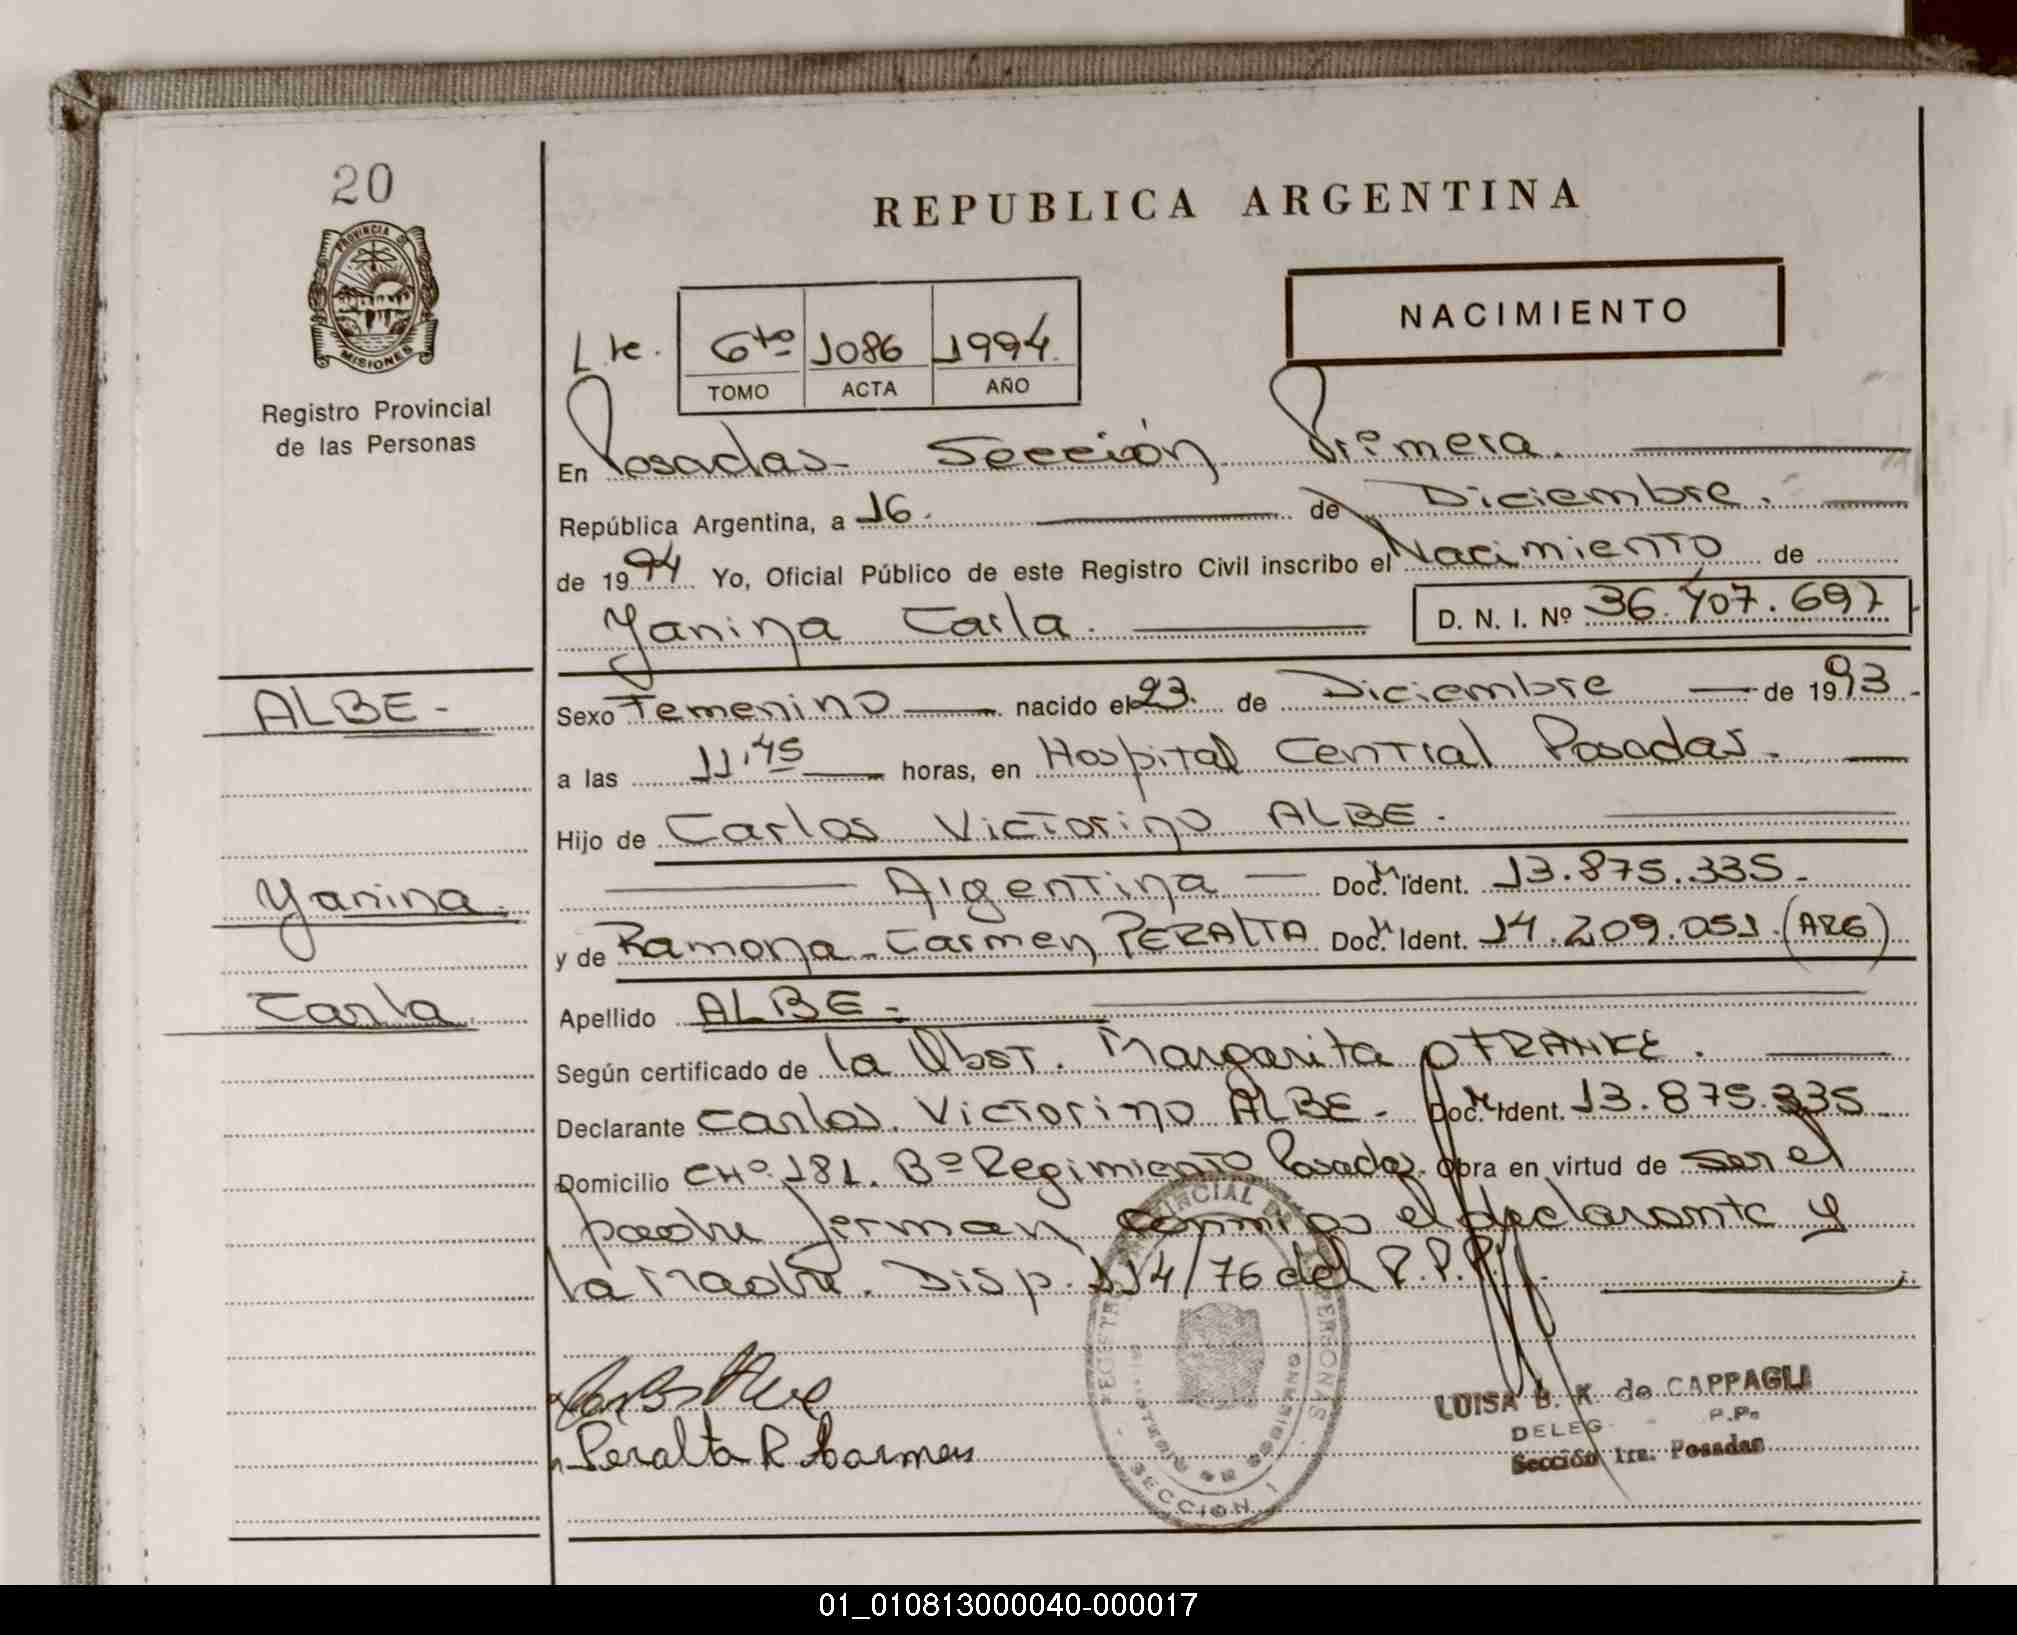 20
PROVINCIA DE
MISIONES
Registro Provincial
de las Personas
REPUBLICA ARGENTINA
NACIMIENTO
6to 1086 1994
TOMO ACTA AÑO
En Posadas Sección Primera.
República Argentina, a 16. de Diciembre.
de 1994 Yo, Oficial Público de este Registro Civil inscribo el Nacimiento de
Yanina Carla. D. N. I. Nº 36.407.697
ALBE.-
Sexo Femenino nacido el 23. de Diciembre de 1993
a las 11,45 horas, en Hospital Central Posadas.
Hijo de Carlos Victorino ALBE.
Yanina.
Argentina Doc. Ident. 13.875.335.
y de Ramona Carmen PERALTA Doc. Ident. 14.209.051.(ARG)
Carla
Apellido ALBE.-
Según certificado de la Obst. Margarita FRANKE.
Declarante Carlos Victorino ALBE. Doc. Ident. 13.875.335
Domicilio CHº 181. Bº Regimiento Posadas. Obra en virtud de ser el
padre firman conmigo el declarante y
la madre. Disp. 114/76 del R.P.P.
Peralta R Carmen
LUISA B. K. de CAPPAGLI
DELEG. P.P.
Sección 1ra. Posadas
SECCION 1
01_010813000040-000017